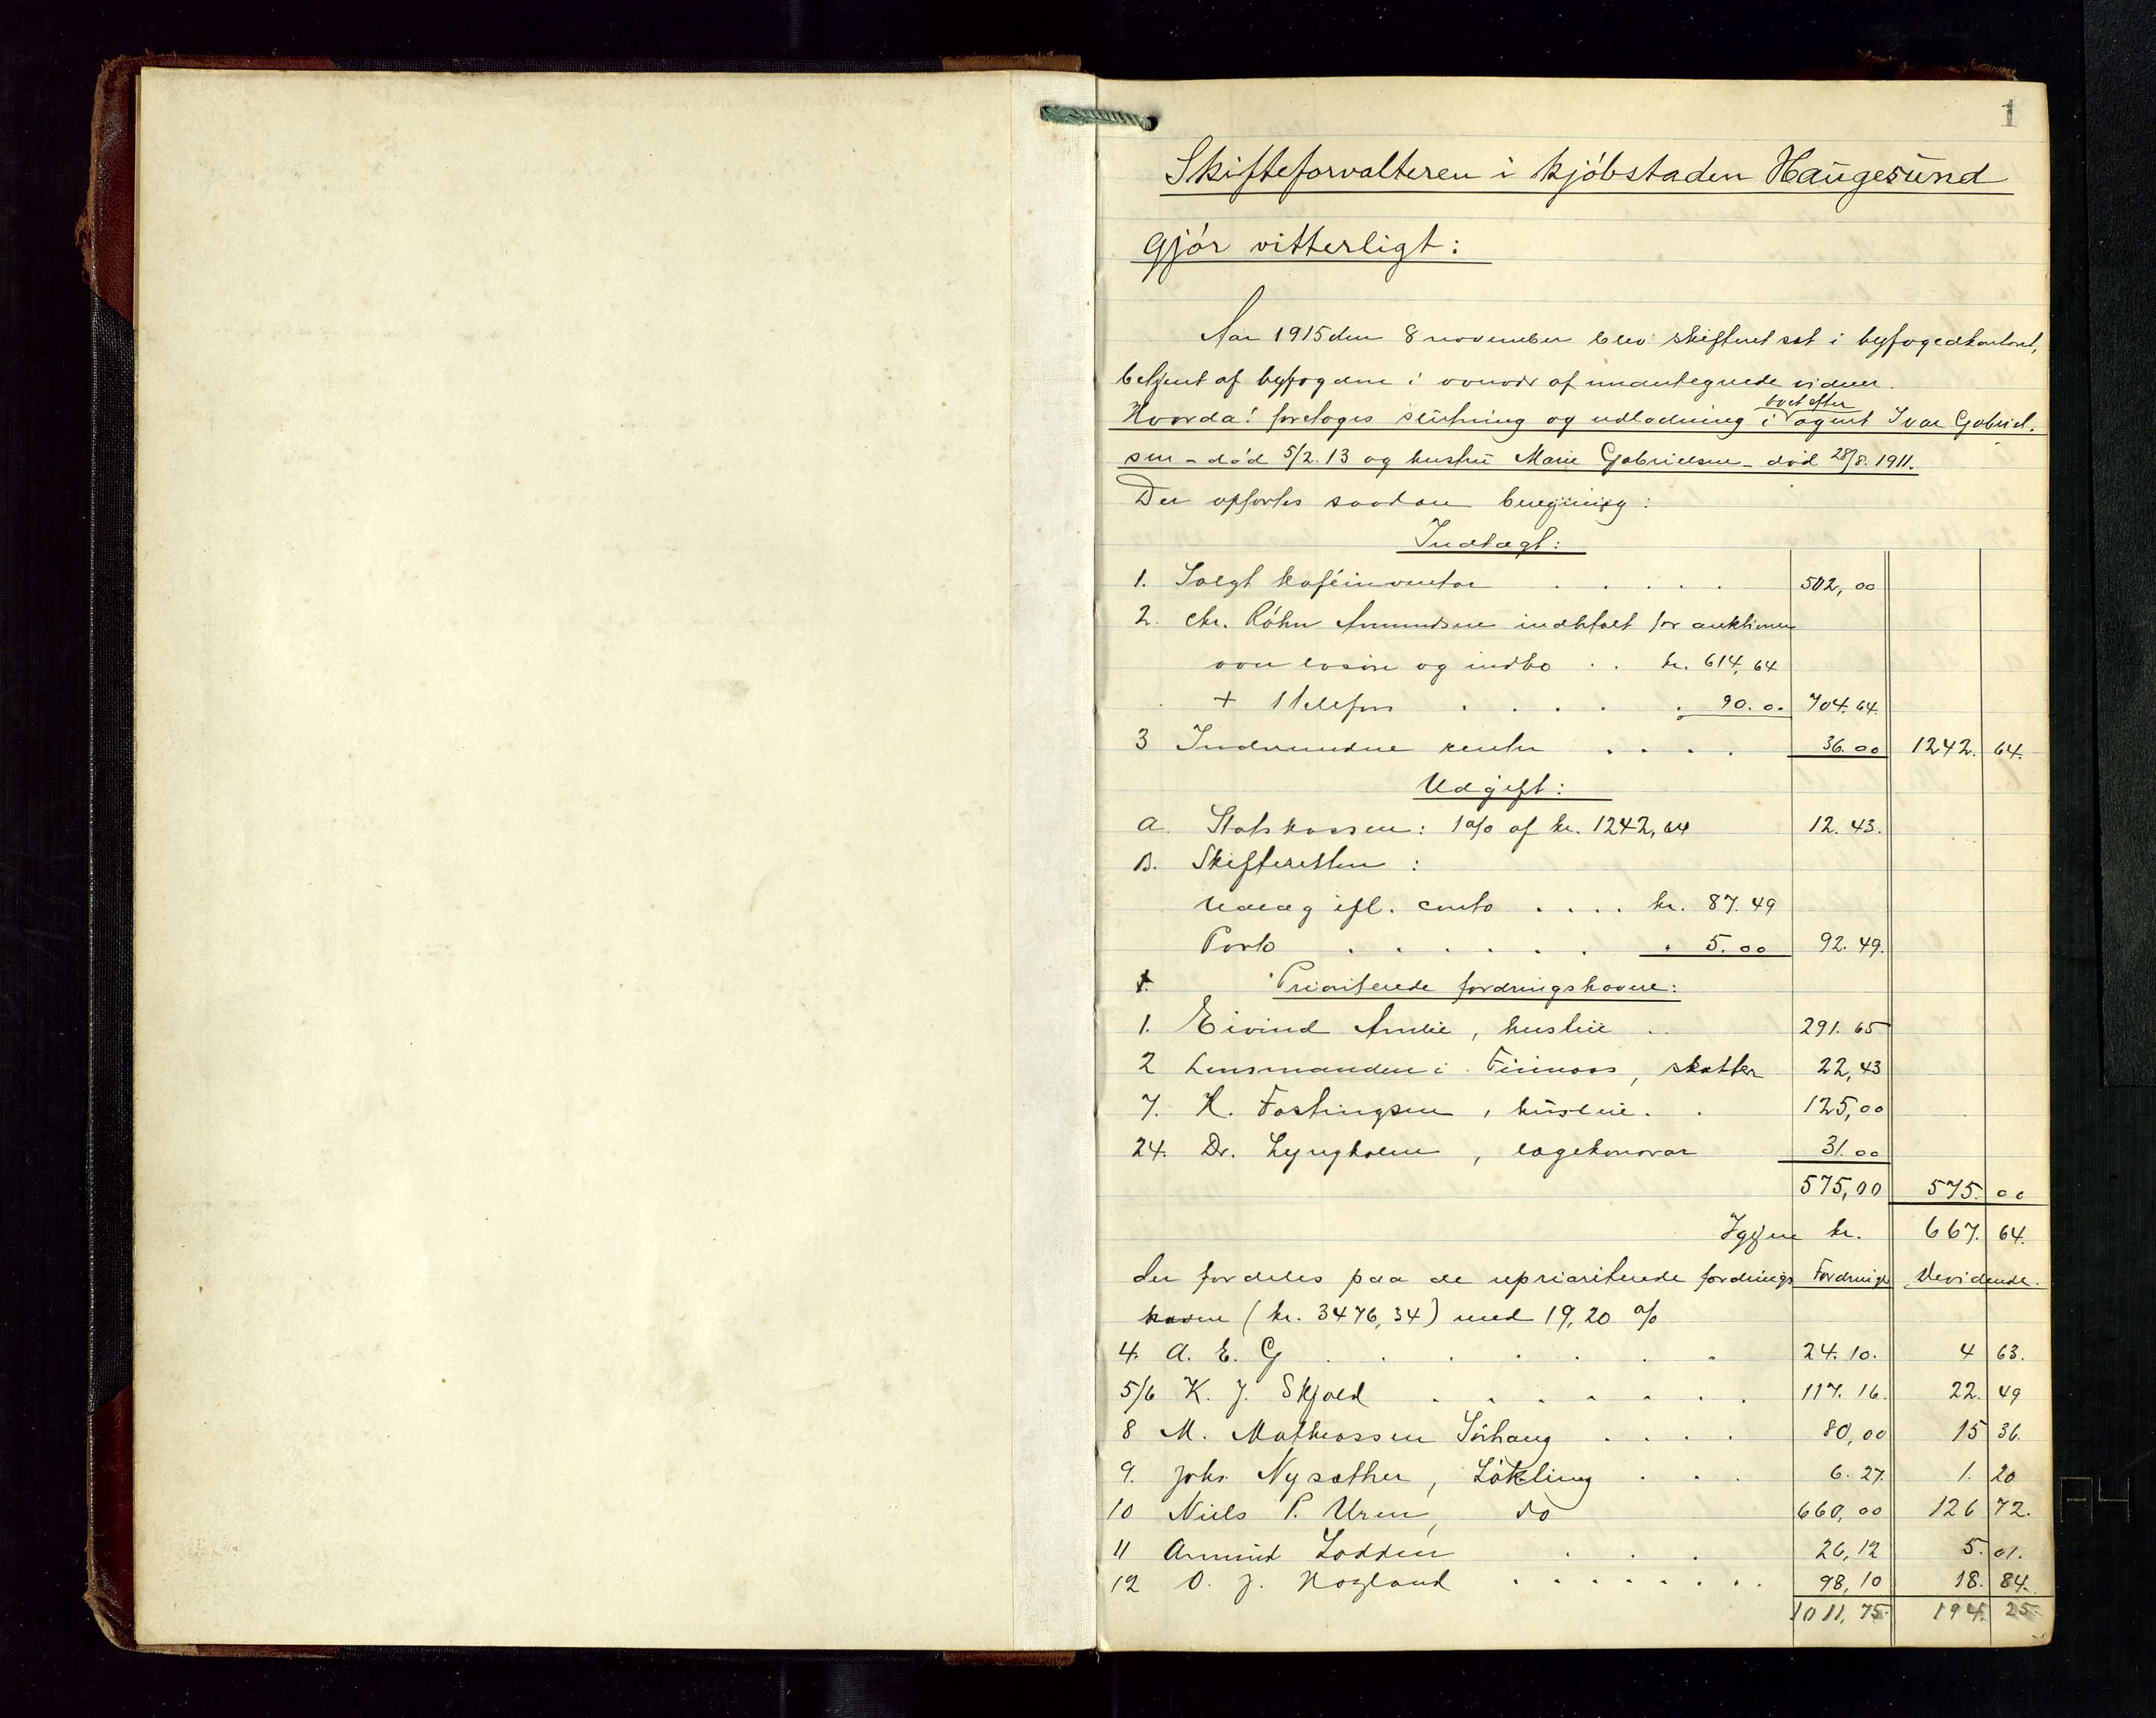 1
Skifteforvalteren i kjöbstaden Haugesund
Gjör vitterligt:
Aar 1915 den 8 november blev skifteret sat i byfogedkontoret,
betjent af byfogden i overvær af undertegnede vidner.
boet efter
Hvorda! foretoges slutning og udlodning i agent Ivar Gabriel-
sen - död 5/2.13 og hustru Marie Gabrielsen - död 28/8.1911.
Der opförtes saadan beregning:
Indtægt:
1. Solgt kaféinventar . . . . . 502,00
2. Chr. Röhn Amundsen indbetalt for auktionen
over lösöre og indbo . . kr. 614,64
+ 1 telefon . . . . . 90.00 704.64.
3 Indvundne renter . . . . 36.00 1242. 64.
Udgift:
a. Statskassen: 1 % af kr. 1242,64 12.43.
B. Skifteretten :
Udlæg ifl. conto . . . . kr. 87.49
Porto . . . . . . . 5.00 92.49.
Prioriterede fordringshavere:
1. Eivind Amlie, husleie . . 291.65
2 Lensmanden i Finnaas, skatter 22,43
7. H. Fastingsen, husleie . . 125,00
24. Dr. Lyngholm, lægehonorar 31.00
575,00 575. 00
Igjen kr. 667. 64.
der fordeles paa de uprioriterede fordrings Fordringer Devidende.
havere (kr. 3476,34) med 19,20 %
4. A. E. G . . . . . . 24.10. 4 63.
5/6 K. J. Skjold . . . . . . 117.16. 22. 49
8 M. Mathiassen Sörhaug . . . . 80,00 15 36.
9. Johs. Nysæther, Lökling . . . 6.27. 1. 20
10 Niels P. Uren, do 660,00 126 72.
11 Amund Lodden . . . 26,12 5. 01.
12 O. J. Hagland . . . . . . . . 98,10 18. 84.
1011,75 194. 25